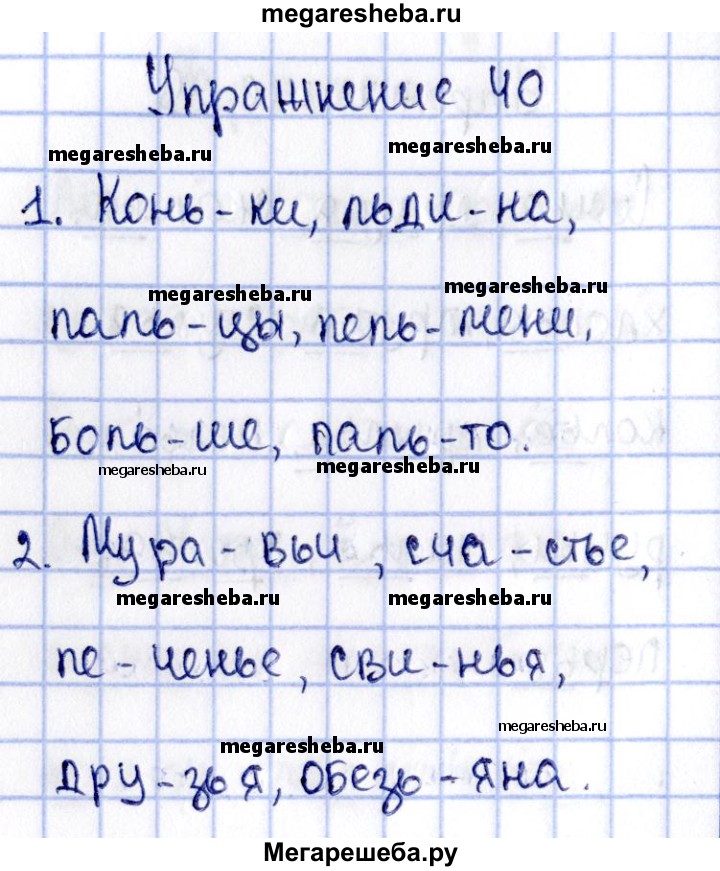 megaresheba.ru
Упражнение 40
megaresheba.ru
megaresheba.ru
1. Конь-ки, льди-на,
megaresheba.ru
megaresheba.ru
паль-цы, пель-мени,
боль-ше, паль-то.
megaresheba.ru
megaresheba.ru
2. Мура-вьи, сча-стье,
megaresheba.ru
megaresheba.ru
пе-ченье, сви-нья,
megaresheba.ru
megaresheba.ru
дру-зья, обезь-яна.
Мегарешеба.ру